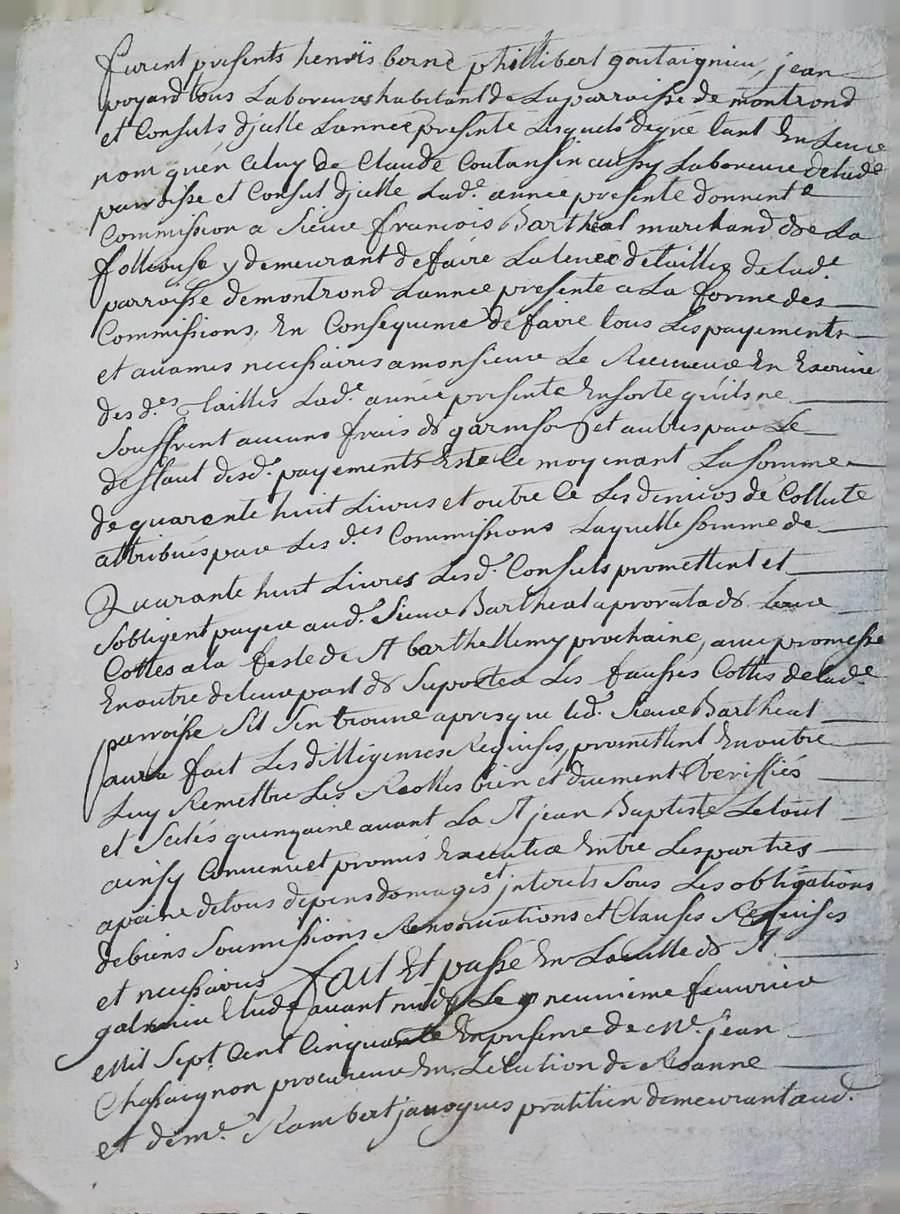 furent presents henris borne phillibert goutaignieu, jean
poyard tous Laboureurs habitant de La parroisse de montrond
et Consuls d'jcelle Lannee presente Lesquels de gré tant En Leur
nom qu'en Celuy de Claude Coutansin aussy Laboureur de lade
parroisse et Consul d'jcelle Lade. année presente donnent
Commission a Sieur francois Bartheal marchand de La
follouse y demeurant de faire La leveé de tailles de lade.
parroisse de montrond Lannee presente a La forme des
Commissions, En Consequence de faire tous Les payements
et avances necessaires a monsieur Le Receveur En Exercice
des des. tailles Lade. année presente En sorte qu'ils ne
Souffrent aucuns frais de garnison et autres par Le
deffaut desd. payements Et ce moyenant La somme
de quarente huit Livres et outre Ce Les deniers de Collecte
attribués par Les des Commissions Laquelle somme de
Quarante huit Livres Lesd. Consuls promettent et
s'obligent payer aud. Sieur Bartheal a prorata de Leurs
Cottes a la feste de St barthellemy prochaine, avec promesse
En outre de leur part de Suporter Les fausses Cottes de lade.
parroisse S'il S'en trouve apres que led. Sieur Bartheal
aura fait Les dilligences Requises, promettent En outre
Luy Remettre Les Rolles bien et duement Veriffiés
et Scelés quinzaine avant La St jean Baptiste Le tout
ainsy Convenu et promis Executer Entre Les parties
a paine de tous depens domages et jnterets Sous Les obligations
de biens Soumissions Renonciations et Clauses Requises
et necessaires fait Et passé En La ville de St
galmier Etude avant midy Le neuvieme feuvrier
Mil Sept Cent Cinquante En presence de Me. jean
Chassaignon procureur En Lelection de Roanne
et de me. Rambert javogues pratitien demeurant aud.